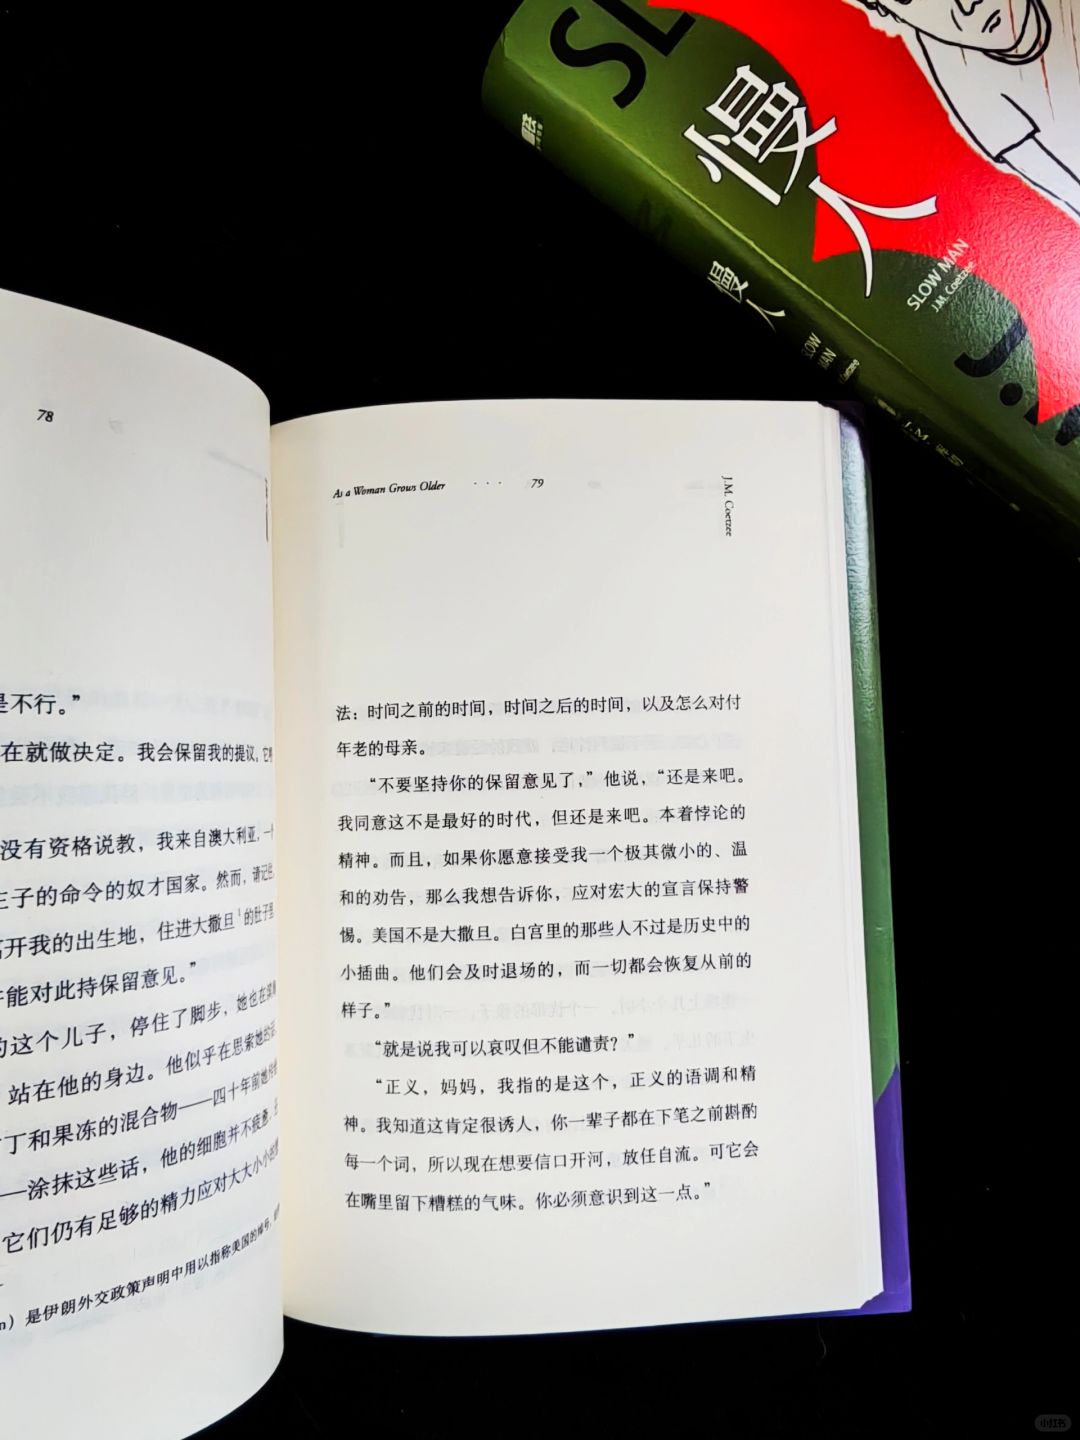 SL
慢人
SLOW MAN
J.M. Coetzee
慢人
SLOW
MAN
Coetzee
J.M. 库切
78
是不行。”
在就做决定。我会保留我的提议，它
没有资格说教，我来自澳大利亚，一个
主子的命令的奴才国家。然而，请记住
离开我的出生地，住进大撒旦¹的肚子里
能对此持保留意见。”
的这个儿子，停住了脚步，她也在
站在他的身边。他似乎在思索她的话
丁和果冻的混合物——四十年前她
——涂抹这些话，他的细胞并不疲惫，
它们仍有足够的精力应对大大小小的
n）是伊朗外交政策声明中用以指称美国的绰号，
As a Woman Grows Older · · · 79
J.M. Coetzee
法：时间之前的时间，时间之后的时间，以及怎么对付
年老的母亲。
“不要坚持你的保留意见了，”他说，“还是来吧。
我同意这不是最好的时代，但还是来吧。本着悖论的
精神。而且，如果你愿意接受我一个极其微小的、温
和的劝告，那么我想告诉你，应对宏大的宣言保持警
惕。美国不是大撒旦。白宫里的那些人不过是历史中的
小插曲。他们会及时退场的，而一切都会恢复从前的
样子。”
“就是说我可以哀叹但不能谴责？”
“正义，妈妈，我指的是这个，正义的语调和精
神。我知道这肯定很诱人，你一辈子都在下笔之前斟酌
每一个词，所以现在想要信口开河，放任自流。可它会
在嘴里留下糟糕的气味。你必须意识到这一点。”
小红书